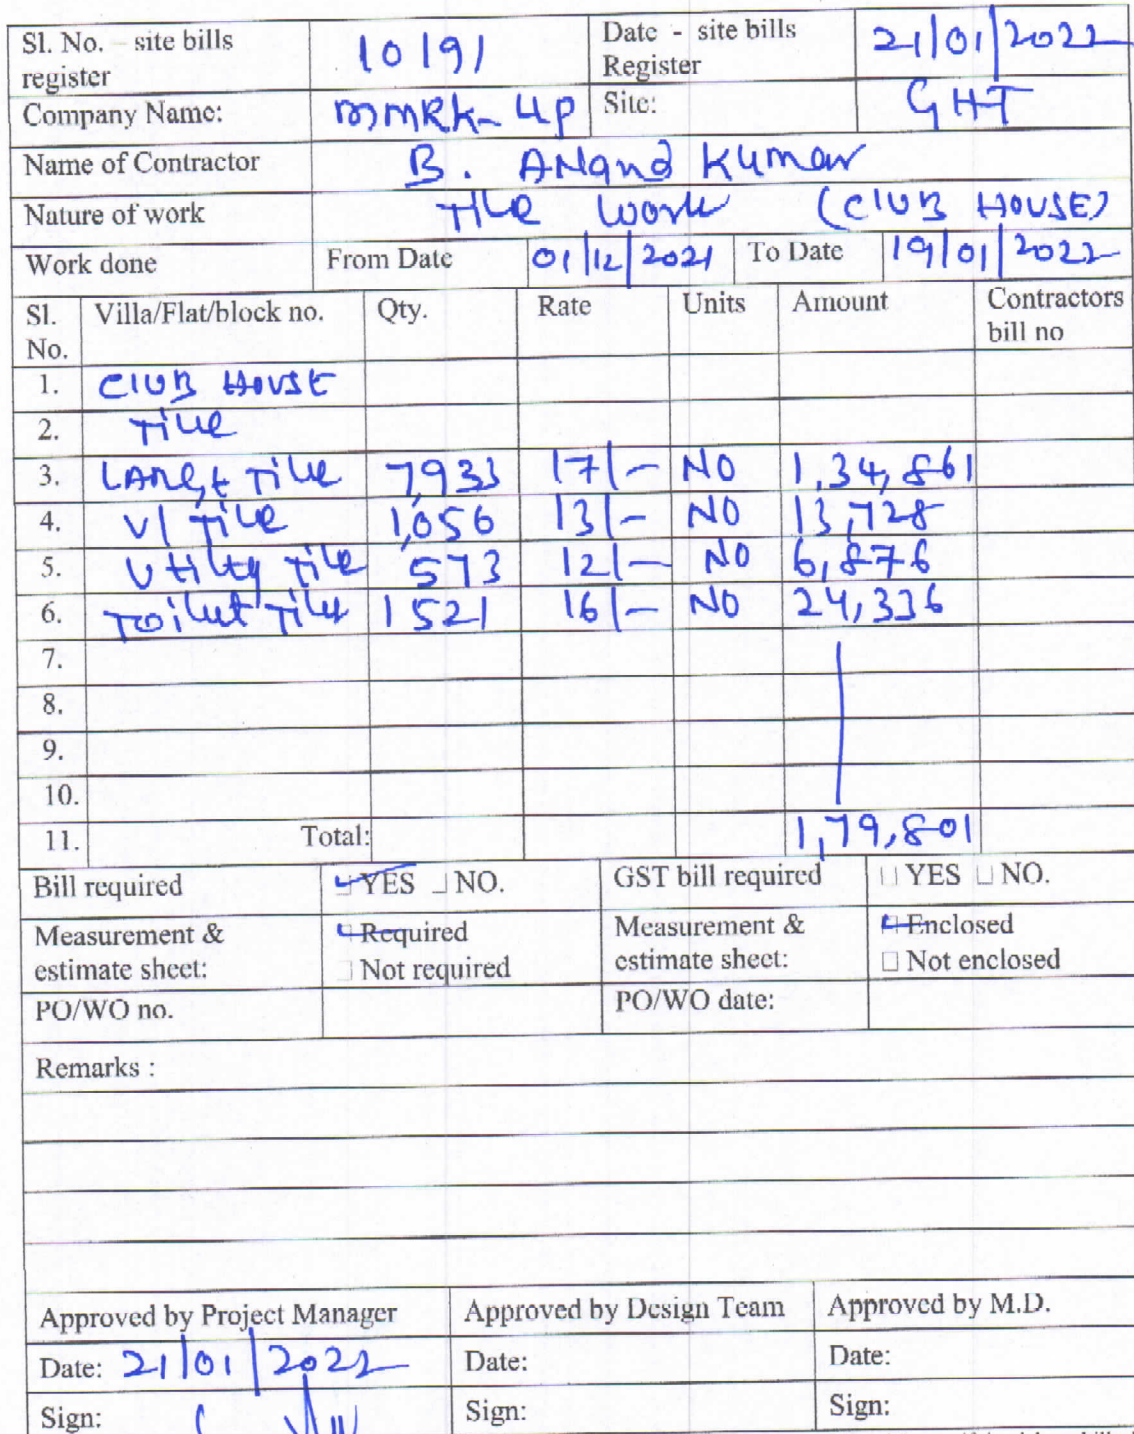 Sl. No. – site bills register 10191 Date - site bills Register 21/01/2022
Company Name: MMRK-UP Site: GHT
Name of Contractor B. ANand Kumar
Nature of work Tile work (CLUB HOUSE)
Work done From Date 01/12/2021 To Date 19/01/2022
Sl. No. Villa/Flat/block no. Qty. Rate Units Amount Contractors bill no
1. CLUB HOUSE
2. Tile
3. LARGE Tile 7,933 17/- NO 1,34,861
4. V/ Tile 1,056 13/- NO 13,728
5. Utilty Tile 573 12/- NO 6,876
6. Toilet Tile 1521 16/- NO 24,336
7.
8.
9.
10.
11. Total: 1,79,801
Bill required YES NO. GST bill required YES NO.
Measurement & estimate sheet: Required Not required Measurement & estimate sheet: Enclosed Not enclosed
PO/WO no. PO/WO date:
Remarks :
Approved by Project Manager Approved by Design Team Approved by M.D.
Date: 21/01/2022 Date: Date:
Sign: Sign: Sign: